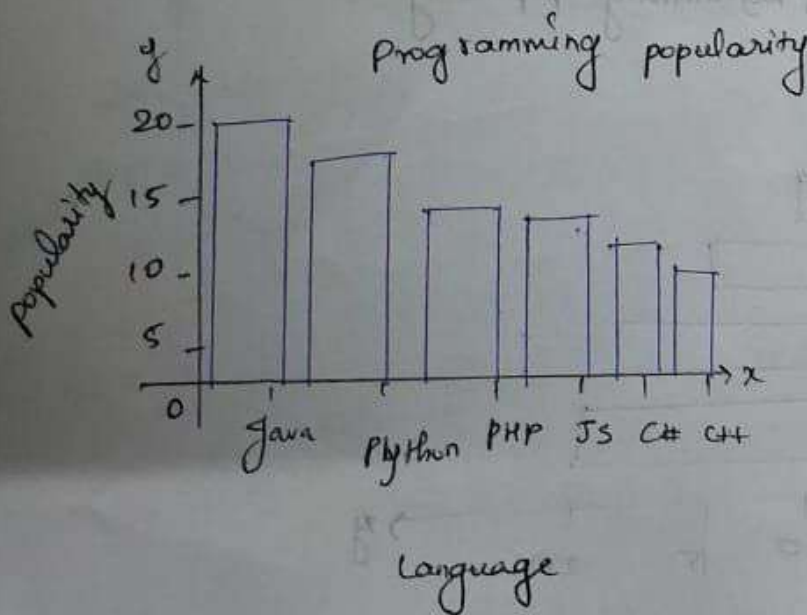 y
Programming popularity
20
Popularity
15
10
5
0
x
Java Plython PHP JS C# C++
Language